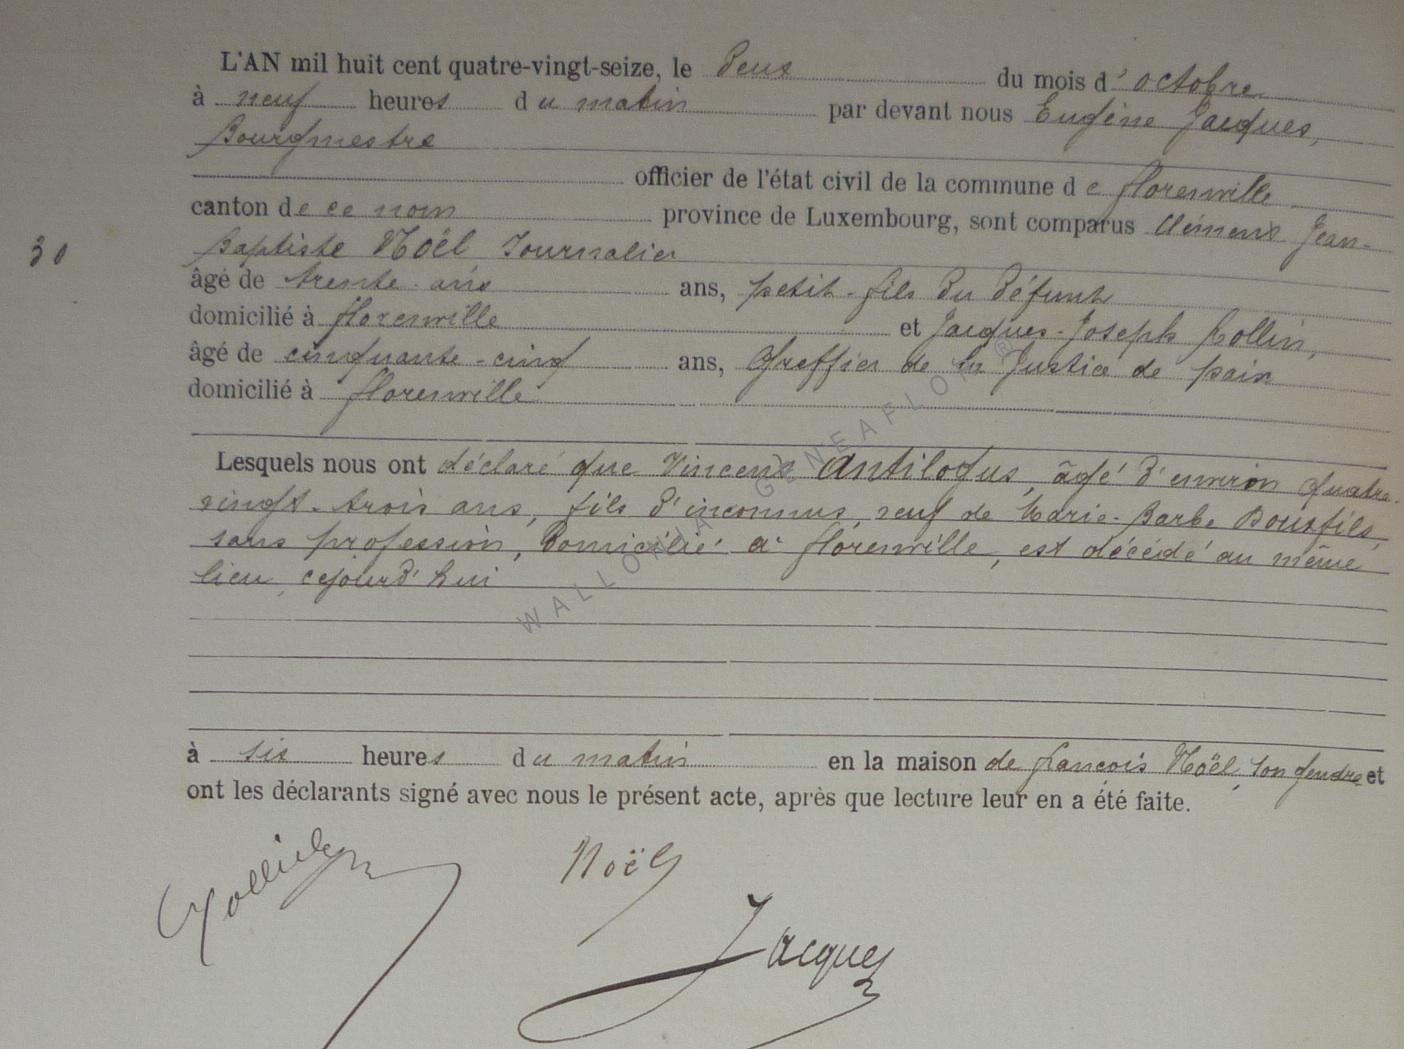 L'AN mil huit cent quatre-vingt-seize, le deux du mois d'octobre
à neuf heures du matin par devant nous Eugène Jacques,
Bourgmestre
officier de l'état civil de la commune de florenville
canton de ce nom province de Luxembourg, sont comparus Clément Jean-
30
Baptiste Noël Journalier
âgé de trente ans ans, petit-fils du défunt
domicilié à florenville et Jacques-Joseph Collin,
âgé de cinquante-cinq ans, Greffier de la Justice de paix
domicilié à florenville
Lesquels nous ont déclaré que Vincent Antilogus, âgé d'environ quatre-
vingt-trois ans, fils d'inconnus, veuf de Marie-Barbe Bonsfils,
sans profession, domicilié à florenville, est décédé au même
lieu, cejourd'hui
WALLONIA GENEAFLOR ®
à six heures du matin en la maison de francois Noël, son gendre et
ont les déclarants signé avec nous le présent acte, après que lecture leur en a été faite.
Collin Noël
Jacques